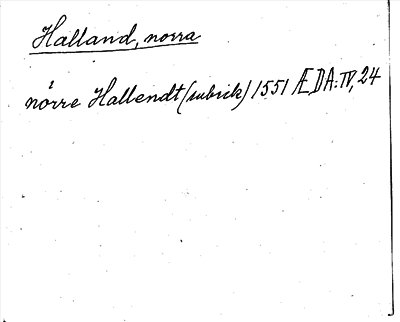 Halland, norra
i
nörre Hallendt (rubrik) 1551 ÆDA: IV, 24